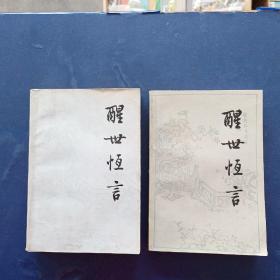 醒世恒言
醒世恆言